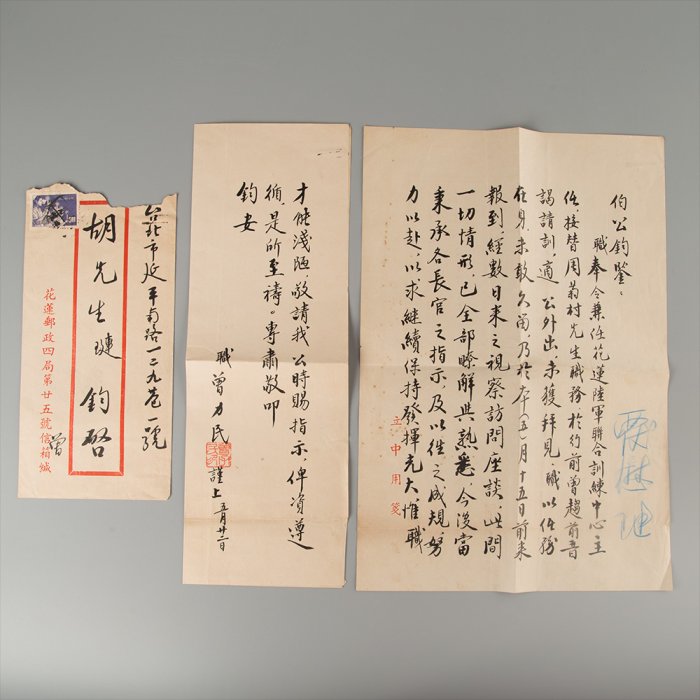 伯公鈞鑒。
職奉令兼任花蓮陸軍聯合訓練中心主
任、接替周菊村先生職務、於行前曾趨前晉
謁請訓、適 公外出、未獲拜見、職以任務
在身、未敢久留、乃於本(五)月十五日前來
報到、經數日來之視察訪問座談、此間
一切情形、已全部瞭解與熟悉、今後當
秉承各長官之指示、及以往之成規、努
力以赴、以求繼續保持發揮光大、惟職
立中用箋
才能淺陋、敬請我 公時賜指示、俾資遵
循、是所至禱。專肅敬叩
鈞安
職 曾力民 謹上 五月廿二日
台北市延平南路一二九巷一號
胡先生璉 鈞啓
花蓮郵政四局第廿五號信箱緘
曾